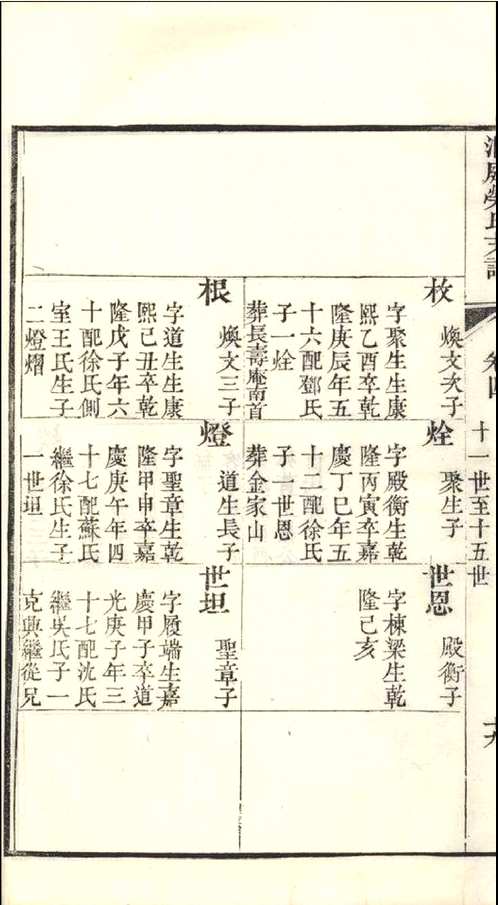 卷四
十一世至十五世
枚
煥文次子
字聚生生康
熙乙酉卒乾
隆庚辰年五
十六配鄧氏
子一烇
葬長壽庵南首
烇
聚生子
字殿衡生乾
隆丙寅卒嘉
慶丁巳年五
十二配徐氏
子一世恩
葬金家山
世恩
殿衡子
字棟梁生乾
隆己亥
根
煥文三子
字道生生康
熙己丑卒乾
隆戊子年六
十配徐氏側
室王氏生子
二燈熠
燈
道生長子
字聖章生乾
隆甲申卒嘉
慶庚午年四
十七配蘇氏
繼徐氏生子
一世坦
世坦
聖章子
字履端生嘉
慶甲子卒道
光庚子年三
十七配沈氏
繼吳氏子一
克典繼從兄